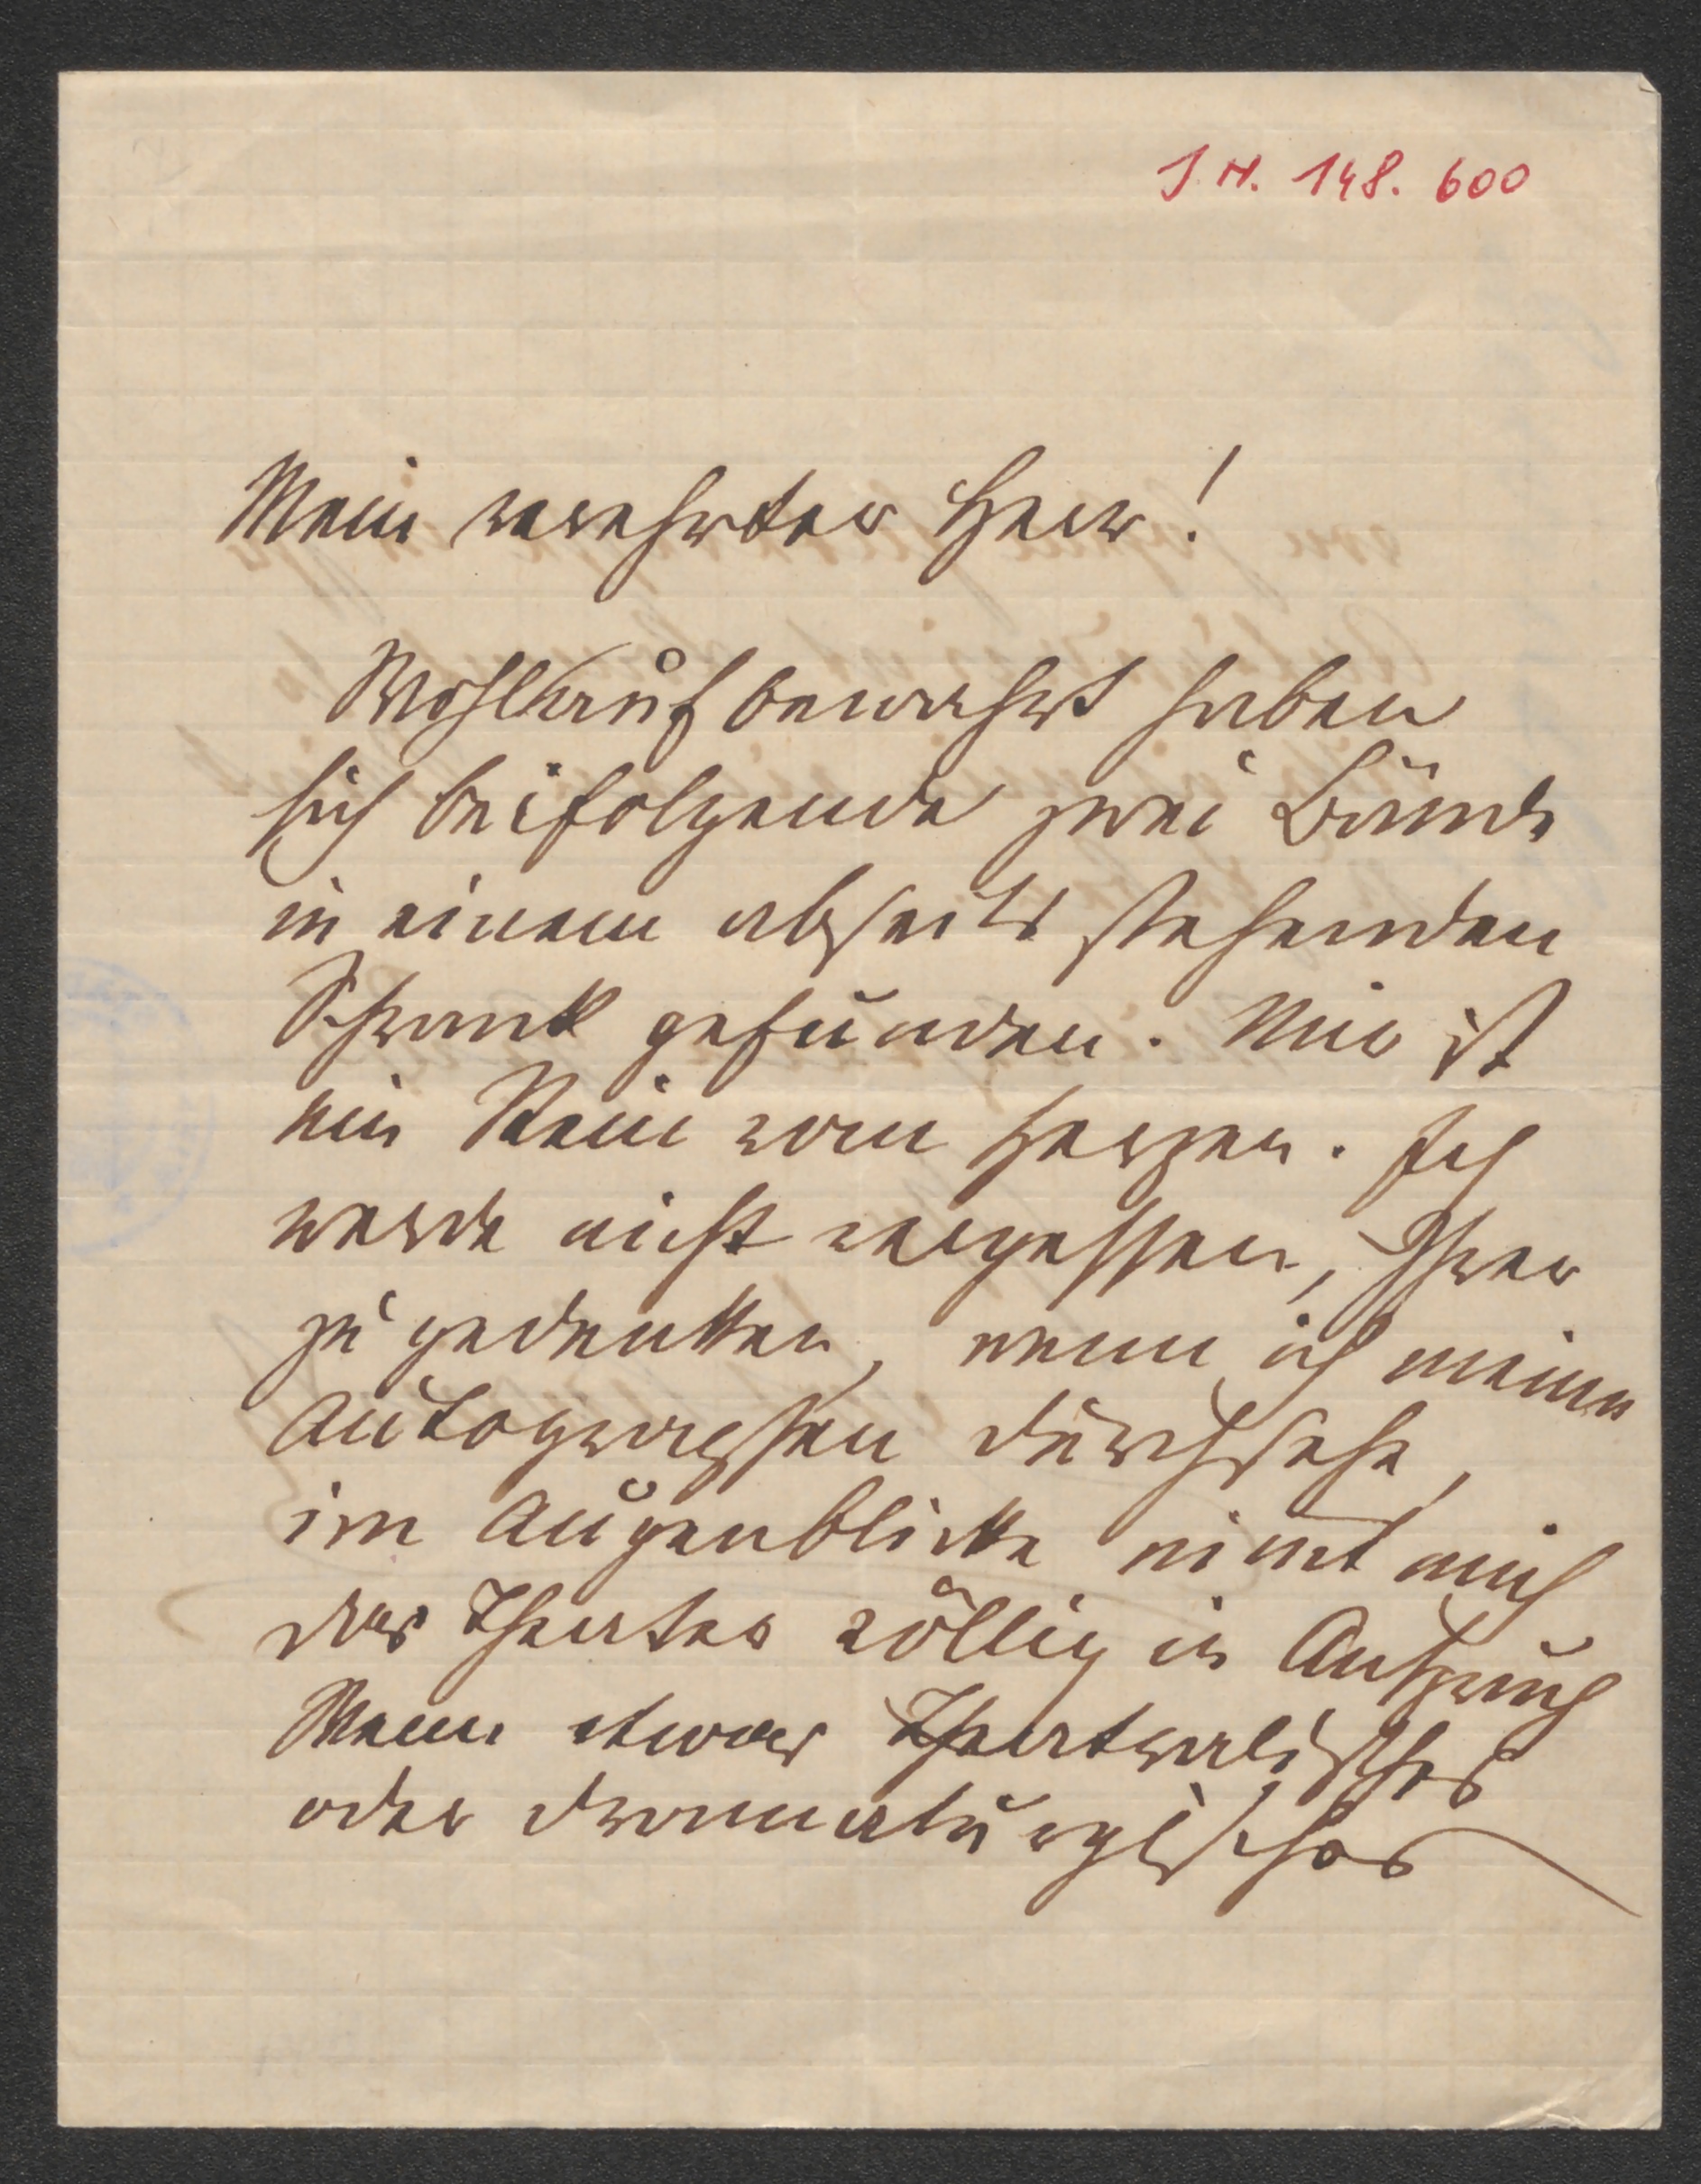 J. N. 148.600
Mein verehrter Herr!
Wohlaufbewahrt haben
sich beifolgende zwei Bände
in einem abseits stehenden
Schrank gefunden. Mir ist
ein Stein vom Herzen. Ich
werde nicht vergessen, Ihrer
zu gedenken, wenn ich meine
Autographen durchsehe,
im Augenblicke nimt mich
das Theater völlig in Anspruch
Wenn etwas Theatralisches
oder dramaturgisches